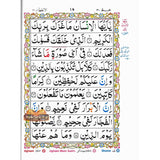 يٰۤاَيُّهَا الْاِنْسَانُ مَا غَرَّكَ بِرَبِّكَ
الْكَرِيْمِ الَّذِيْ خَلَقَكَ فَسَوّٰىكَ
فَعَدَلَكَ فِيْۤ اَيِّ صُوْرَةٍ مَّا شَآءَ
رَكَّبَكَ كَلَّا بَلْ تُكَذِّبُوْنَ بِالدِّيْنِ
وَاِنَّ عَلَيْكُمْ لَحٰفِظِيْنَ كِرَامًا
كَاتِبِيْنَ يَعْلَمُوْنَ مَا تَفْعَلُوْنَ
اِنَّ الْاَبْرَارَ لَفِيْ نَعِيْمٍ وَاِنَّ
الْفُجَّارَ لَفِيْ جَحِيْمٍ يَّصْلَوْنَهَا
يَوْمَ الدِّيْنِ وَمَا هُمْ عَنْهَا